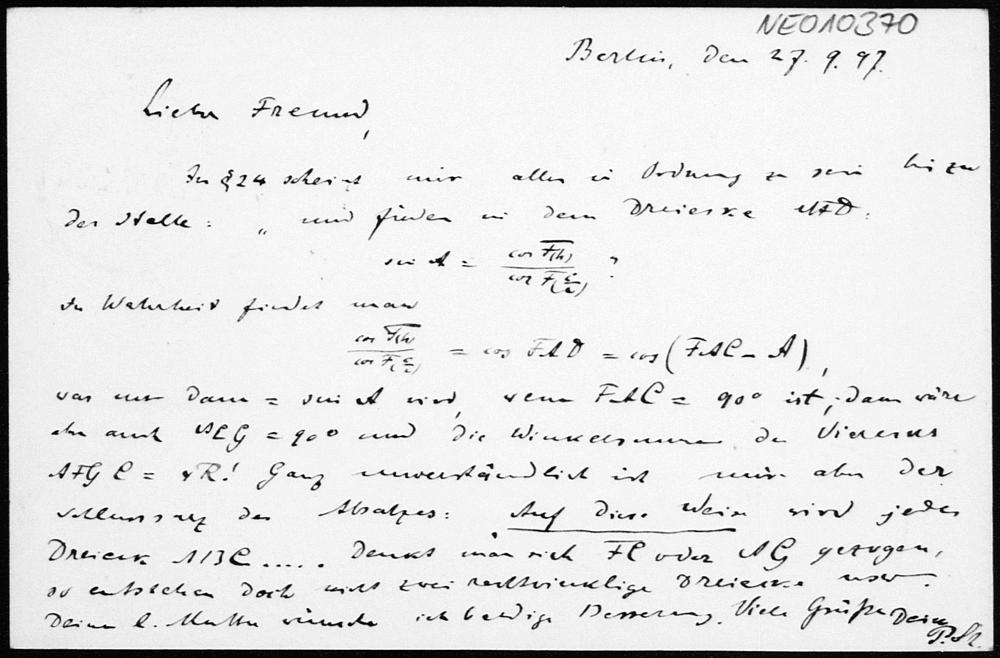 NEO10370
Berlin, den 27. 9. 97.
Lieber Freund,
In § 24 scheint mir alles in Ordnung zu sein bis zu
der Stelle: „ und finden in dem Dreiecke AFD:
sin A = cos F(h) / cos F(c/2) ?
In Wahrheit findet man
cos F(h) / cos F(c/2) = cos FAD = cos (FAC - A),
was nur dann = sin A wird, wenn FAC = 90° ist; dann wäre
aber auch ACG = 90° und die Winkelsumme des Vierecks
AFGC = 4R! Ganz unverständlich ist mir aber der
Schlusssatz des Absatzes: Auf diese Weise wird jedes
Dreieck ABC..... Denkt man sich FC oder AG gezogen,
so entstehen doch nicht zwei rechtwinklige Dreiecke usw.
Deiner l. Mutter wünsche ich baldige Besserung. Viele Grüße Dein
P. St.